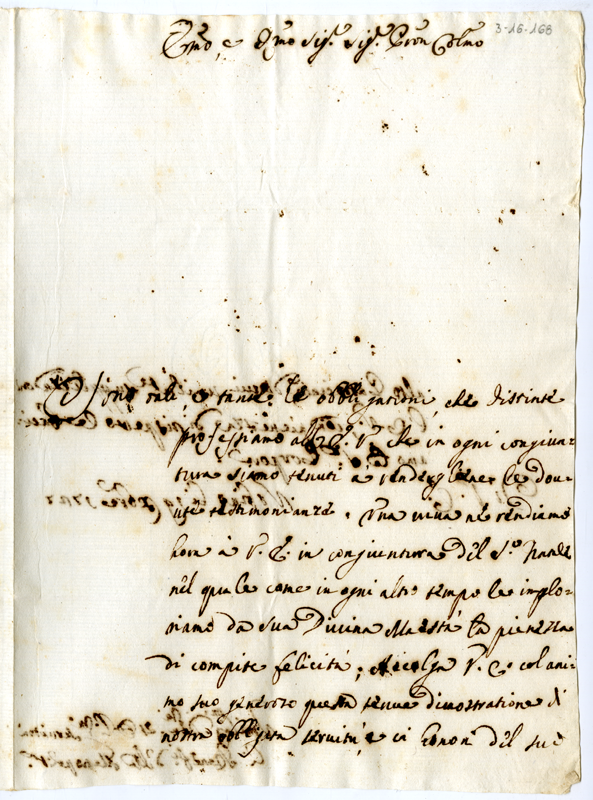 3-16-168
Emo, e Rmo Sig.r Sig.r Pron Colmo
Sono tali, e tante le obbligationi, che distinte
professiamo all'E. V. che in ogni congiun-
tura siamo tenuti a rendergliene le dou-
ute testimonianze. Una viva ne rendiamo
hora à V. E. in congiuntura del S.o Natale
nel quale come in ogni altro tempo le implo-
riamo da sua Divina Maestà la pienezza
di compite felicità; Accolga V. E. col ani-
mo suo generoso questa tenue dimostratione di
nostra obbligata servitù, e ci honori del suo